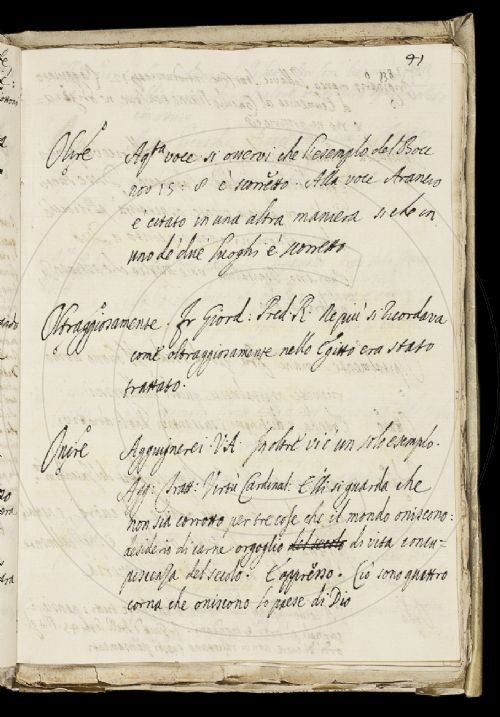 91
Olire A q.ta voce si osservi che l'esempio del Bocc
nov 15. 8 è scorretto. Alla voce Arancio
è citato in una altra maniera si che in
uno de' due luoghi è scorretto
Oltraggiosamente. Fr Giord: Pred. R. Ne più si ricordava
come oltraggiosamente nello Egitto era stato
trattato.
Onire Aggiugnerei V.A. Inoltre vi è un solo esempio.
Agg: Tratt: Virtù Cardinal: Elli si guarda che
non sia corrotto per tre cose che il mondo oniscono:
desiderio di carne orgoglio del secolo di vita concu-
piscenza del secolo. E appresso. Ciò sono quattro
corna che oniscono lo paese di Dio